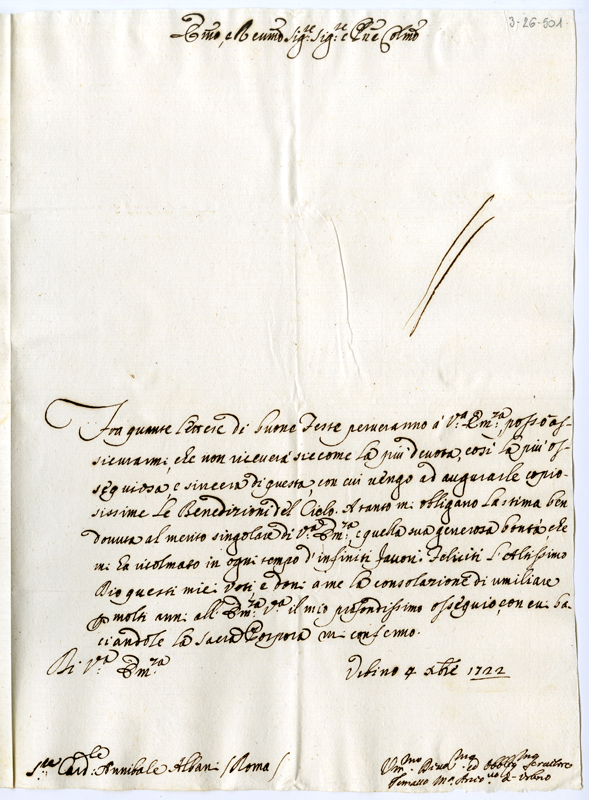 3-26-501
Em̃o, e Reum̃o Sig.re Sig.re e Pñe Colm̃o
Fra quante lettere di buone Feste perueranno à V.ra Em.za, posso as-
sicurarmi, che non riceuerà siccome la più deuota, così la più os-
sequiosa, e sincera di questa, con cui uengo ad augurarle copio-
sissime le Benedizioni del Cielo. A tanto mi obligano la stima ben
douuta al merito singolare di V.ra Em.za, e quella sua generosa bontà, che
mi hà ricolmato in ogni tempo d'infiniti fauori. Feliciti l'Altissimo
Dio questi miei uoti, e doni a me la consolazione di umiliare
p molti anni all'Em.za V.ra il mio profondissimo ossequio, con cui ba-
ciandole la Sacra Porpora mi confermo.
Di V.ra Em.za
Vrbino 4 xbre 1722
S.re Card.le Annibale Albani (Roma)
Vm.mo Deuo.mo ed Obblig.mo Seruitore
Tomaso M.a Arciu.o d'Vrbino